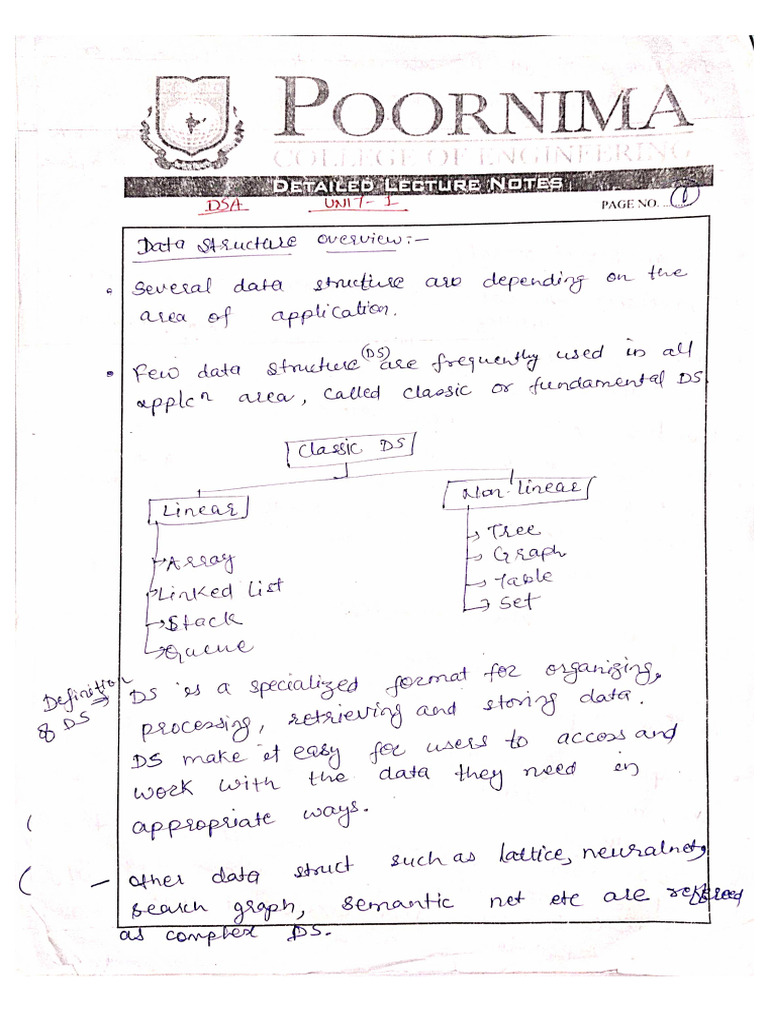 POORNIMA
COLLEGE OF ENGINEERING
DETAILED LECTURE NOTES
DSA UNIT-1 PAGE NO. ... 1
Data Structure overview:-
• Several data structure are depending on the
area of application.
• Few data structure (DS) are frequently used in all
applcn area, called classic or fundamental DS
Classic DS
Linear
Non-linear
Array
Linked List
Stack
Queue
Tree
Graph
Table
Set
Definition
of DS ⇒
DS is a specialized format for organizing,
processing, retrieving and storing data.
DS make it easy for users to access and
work with the data they need in
appropriate ways.
- Other data struct such as lattice, neuralnet,
search graph, semantic net etc are referred
as complex DS.